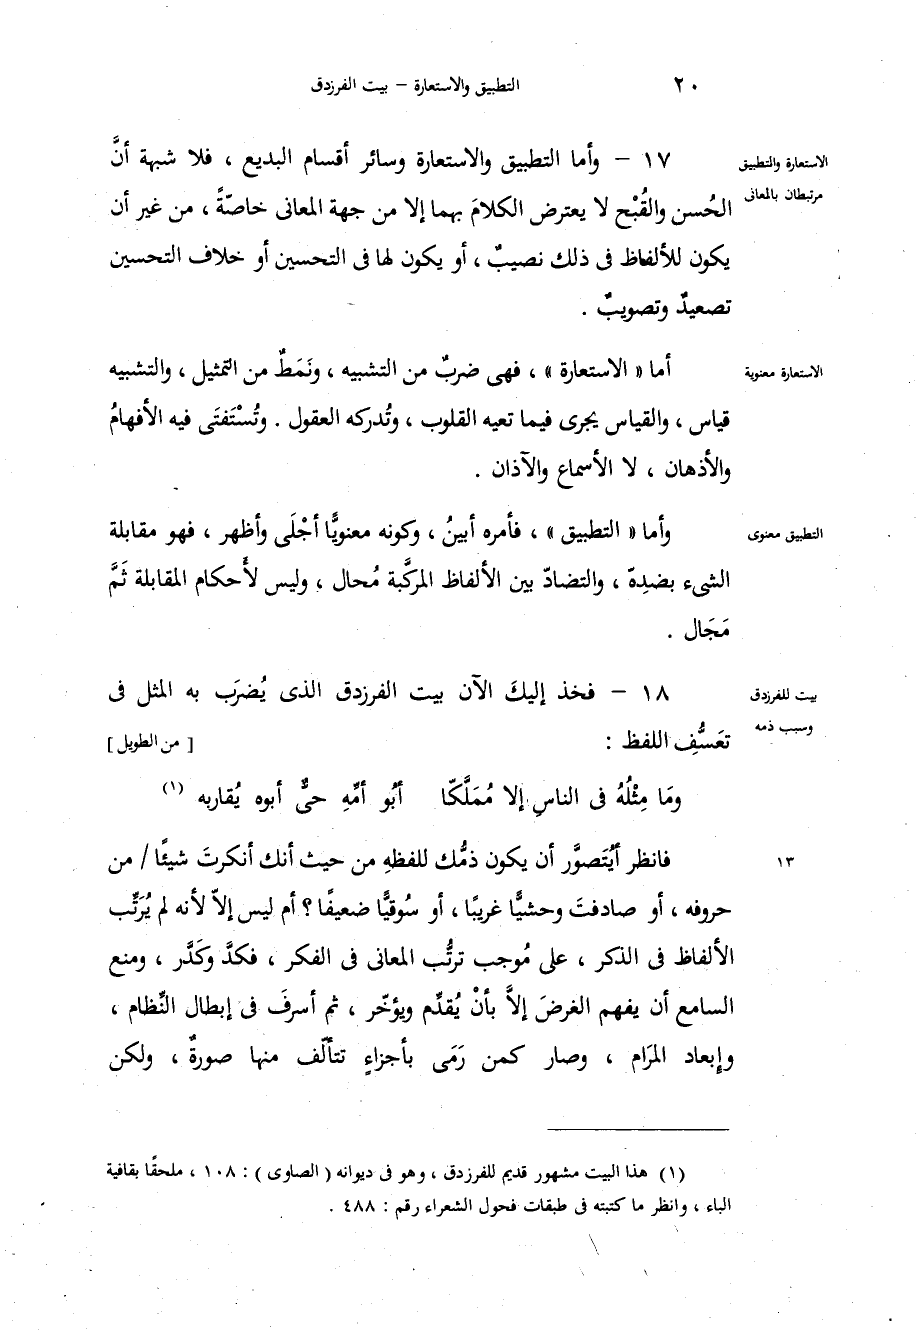 ٢٠
التطبيق والاستعارة – بيت الفرزدق
الاستعارة والتطبيق
مرتبطان بالمعانى
١٧ – وأما التطبيق والاستعارة وسائر أقسام البديع ، فلا شبهة أنَّ
الحُسن والقُبْح لا يعترض الكلامَ بهما إلا من جهة المعانى خاصّةً ، من غير أن
يكون للألفاظ فى ذلك نصيبٌ ، أو يكون لها فى التحسين أو خلاف التحسين
تصعيدٌ وتصويبٌ .
الاستعارة معنوية
أما « الاستعارة » ، فهى ضربٌ من التشبيه ، ونَمَطٌ من التمثيل ، والتشبيه
قياس ، والقياس يجرى فيما تعيه القلوب ، وتُدركه العقول . وتُسْتَفتَى فيه الأفهامُ
والأذهان ، لا الأسماع والآذان .
التطبيق معنوى
وأما « التطبيق » ، فأمره أبينُ ، وكونه معنويًّا أجْلَى وأظهر ، فهو مقابلة
الشىء بضدِهّ ، والتضادّ بين الألفاظ المركَّبة مُحال ، وليس لأحكام المقابلة ثَمَّ
مَجَال .
بيت للفرزدق
وسبب ذمه
١٨ – فخذ إليكَ الآن بيت الفرزدق الذى يُضرَب به المثل فى
تعَسُّفِ اللفظ :
[ من الطويل ]
ومَا مِثْلُهُ فى الناسِ إلا مُمَلَّكًا أبُو أمّهِ حىٌّ أبوه يُقاربه (١)
١٣
فانظر أيُتَصوَّر أن يكون ذمُّك للفظهِ من حيث أنك أنكرتَ شيئًا / من
حروفه ، أو صادفتَ وحشيًّا غريبًا ، أو سُوقيًّا ضعيفًا ؟ أم ليس إلاّ لأنه لم يُرَتِّب
الألفاظ فى الذكر ، على مُوجب ترتُّب المعانى فى الفكر ، فكدَّ وكَدَّر ، ومنع
السامع أن يفهم الغرضَ إلاَّ بأنْ يُقدِّم ويؤخّر ، ثم أسرفَ فى إبطال النِّظام ،
وإبعاد المرَام ، وصار كمن رَمَى بأجزاءٍ تتألّف منها صورةٌ ، ولكن
(١) هذا البيت مشهور قديم للفرزدق ، وهو فى ديوانه ( الصاوى ) : ١٠٨ ، ملحقًا بقافية
الباء ، وانظر ما كتبته فى طبقات فحول الشعراء رقم : ٤٨٨ .